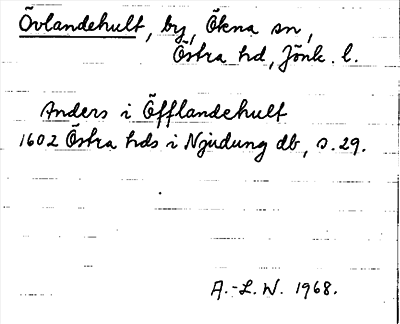 Övlandehult, by, Ökna sn,
Östra hd, Jönk. l.
Anders i Öfflandehult
1602 Östra hds i Njudung db, s. 29.
A.-L. W. 1968.